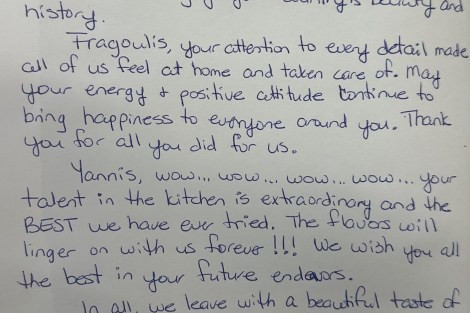 beauty and
history.
Fragoulis, your attention to every detail made
all of us feel at home and taken care of. May
your energy & positive attitude continue to
bring happiness to everyone around you. Thank
you for all you did for us.
Yannis, wow... wow... wow... wow... your
talent in the kitchen is extraordinary and the
BEST we have ever tried. The flavors will
linger on with us forever !!! We wish you all
the best in your future endeavors.
In all, we leave with a beautiful taste of